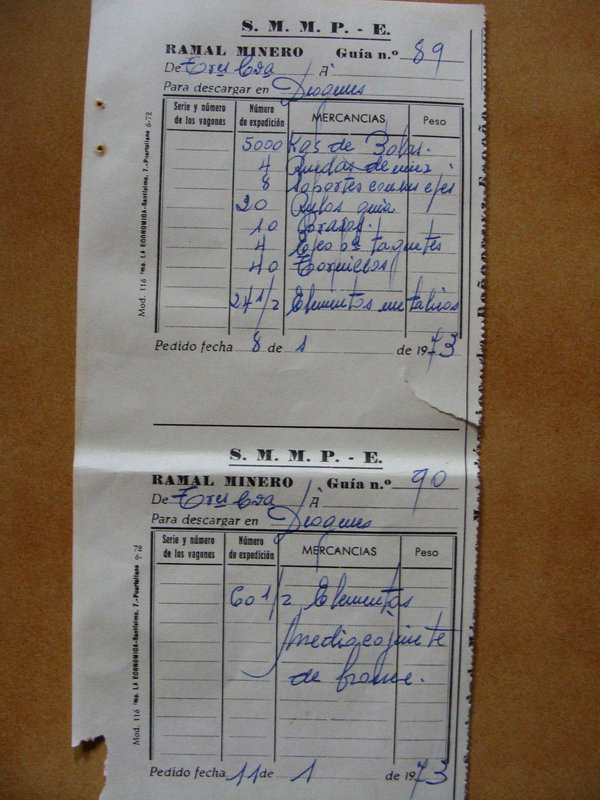 S. M. M. P. - E.
RAMAL MINERO Guía n.º 89
De Tres Cda A
Para descargar en Diógenes
Serie y número de los vagones Número de expedición MERCANCIAS Peso
5000 Kgs de Bolas.
4 Ruedas de
8 Soportes con sus ejes
20 Rulos guia
10 Brazos
4 taquetes
40 Tornillos
24 1/2 Elementos metalicos
Pedido fecha 8 de 1 de 1973
Mod. 116 Imp. LA ECONOMICA-Santísimo, 7.-Puertollano 6-72
S. M. M. P. - E.
RAMAL MINERO Guía n.º 90
De Tres Cda A
Para descargar en Diógenes
Serie y número de los vagones Número de expedición MERCANCIAS Peso
60 1/2 Elementos
medio cojinete
de bronce.
Pedido fecha 11 de 1 de 1973
Mod. 116 Imp. LA ECONOMICA-Santísimo, 7.-Puertollano 6-72